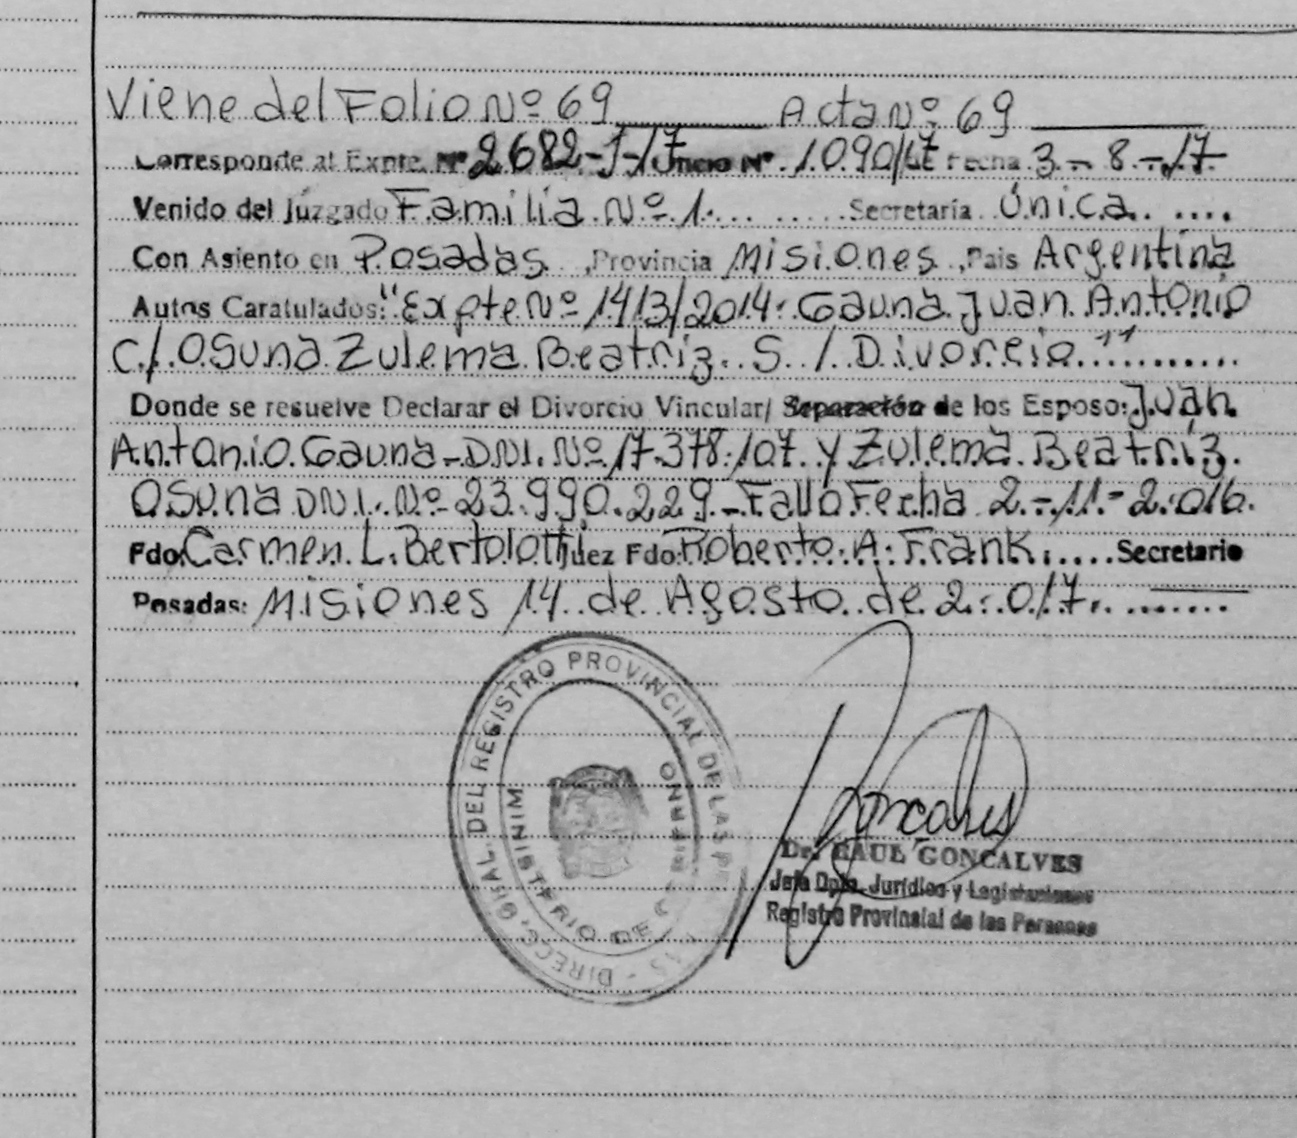 Viene del Folio Nº 69 Acta Nº 69
Corresponde al Expte. Nº 2682-J-17 Oficio Nº 1090/17 Fecha 3-8-17
Venido del Juzgado Familia Nº 1 Secretaría Única
Con Asiento en Posadas, Provincia Misiones, Pais Argentina
Autos Caratulados: "Expte Nº 1413/2014: Gauna Juan Antonio
c/ Osuna Zulema Beatriz S/Divorcio"
Donde se resuelve Declarar el Divorcio Vincular/ Separación de los Esposo: Juan
Antonio Gauna - DNI. Nº 17.378.107 y Zulema Beatriz
Osuna DNI. Nº 23.990.229 - Fallo Fecha 2-11-2016.
Fdo: Carmen L. Bertolotti Juez Fdo: Roberto A. Frank. Secretario
Posadas: Misiones 14 de Agosto de 2.017.
DIRECC. GRAL. DEL REGISTRO PROVINCIAL DE LAS
MINISTERIO DE GOBIERNO
Goncalves
Dr. RAUL GONCALVES
Jefe Dpto. Jurídico y Legislaciones
Registro Provincial de las Personas